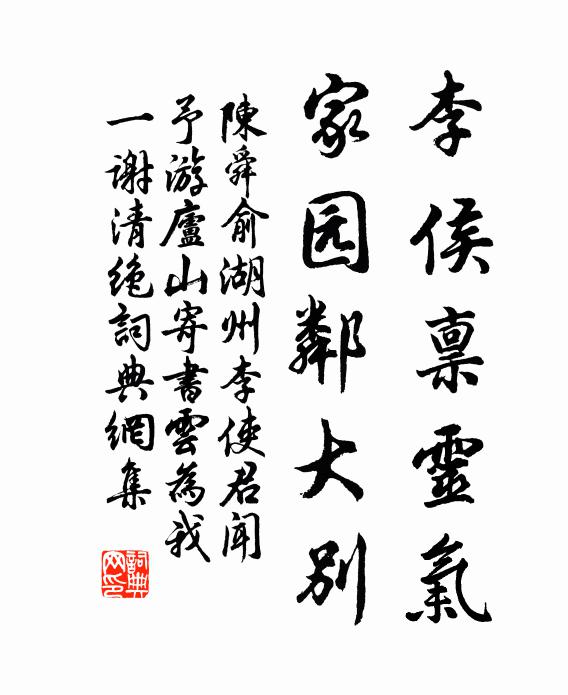 李侯禀靈氣
家园鄰大别
陳舜俞湖州李使君聞
予游廬山寄書雲為我
一谢清絶詞典網集
詞典
网印